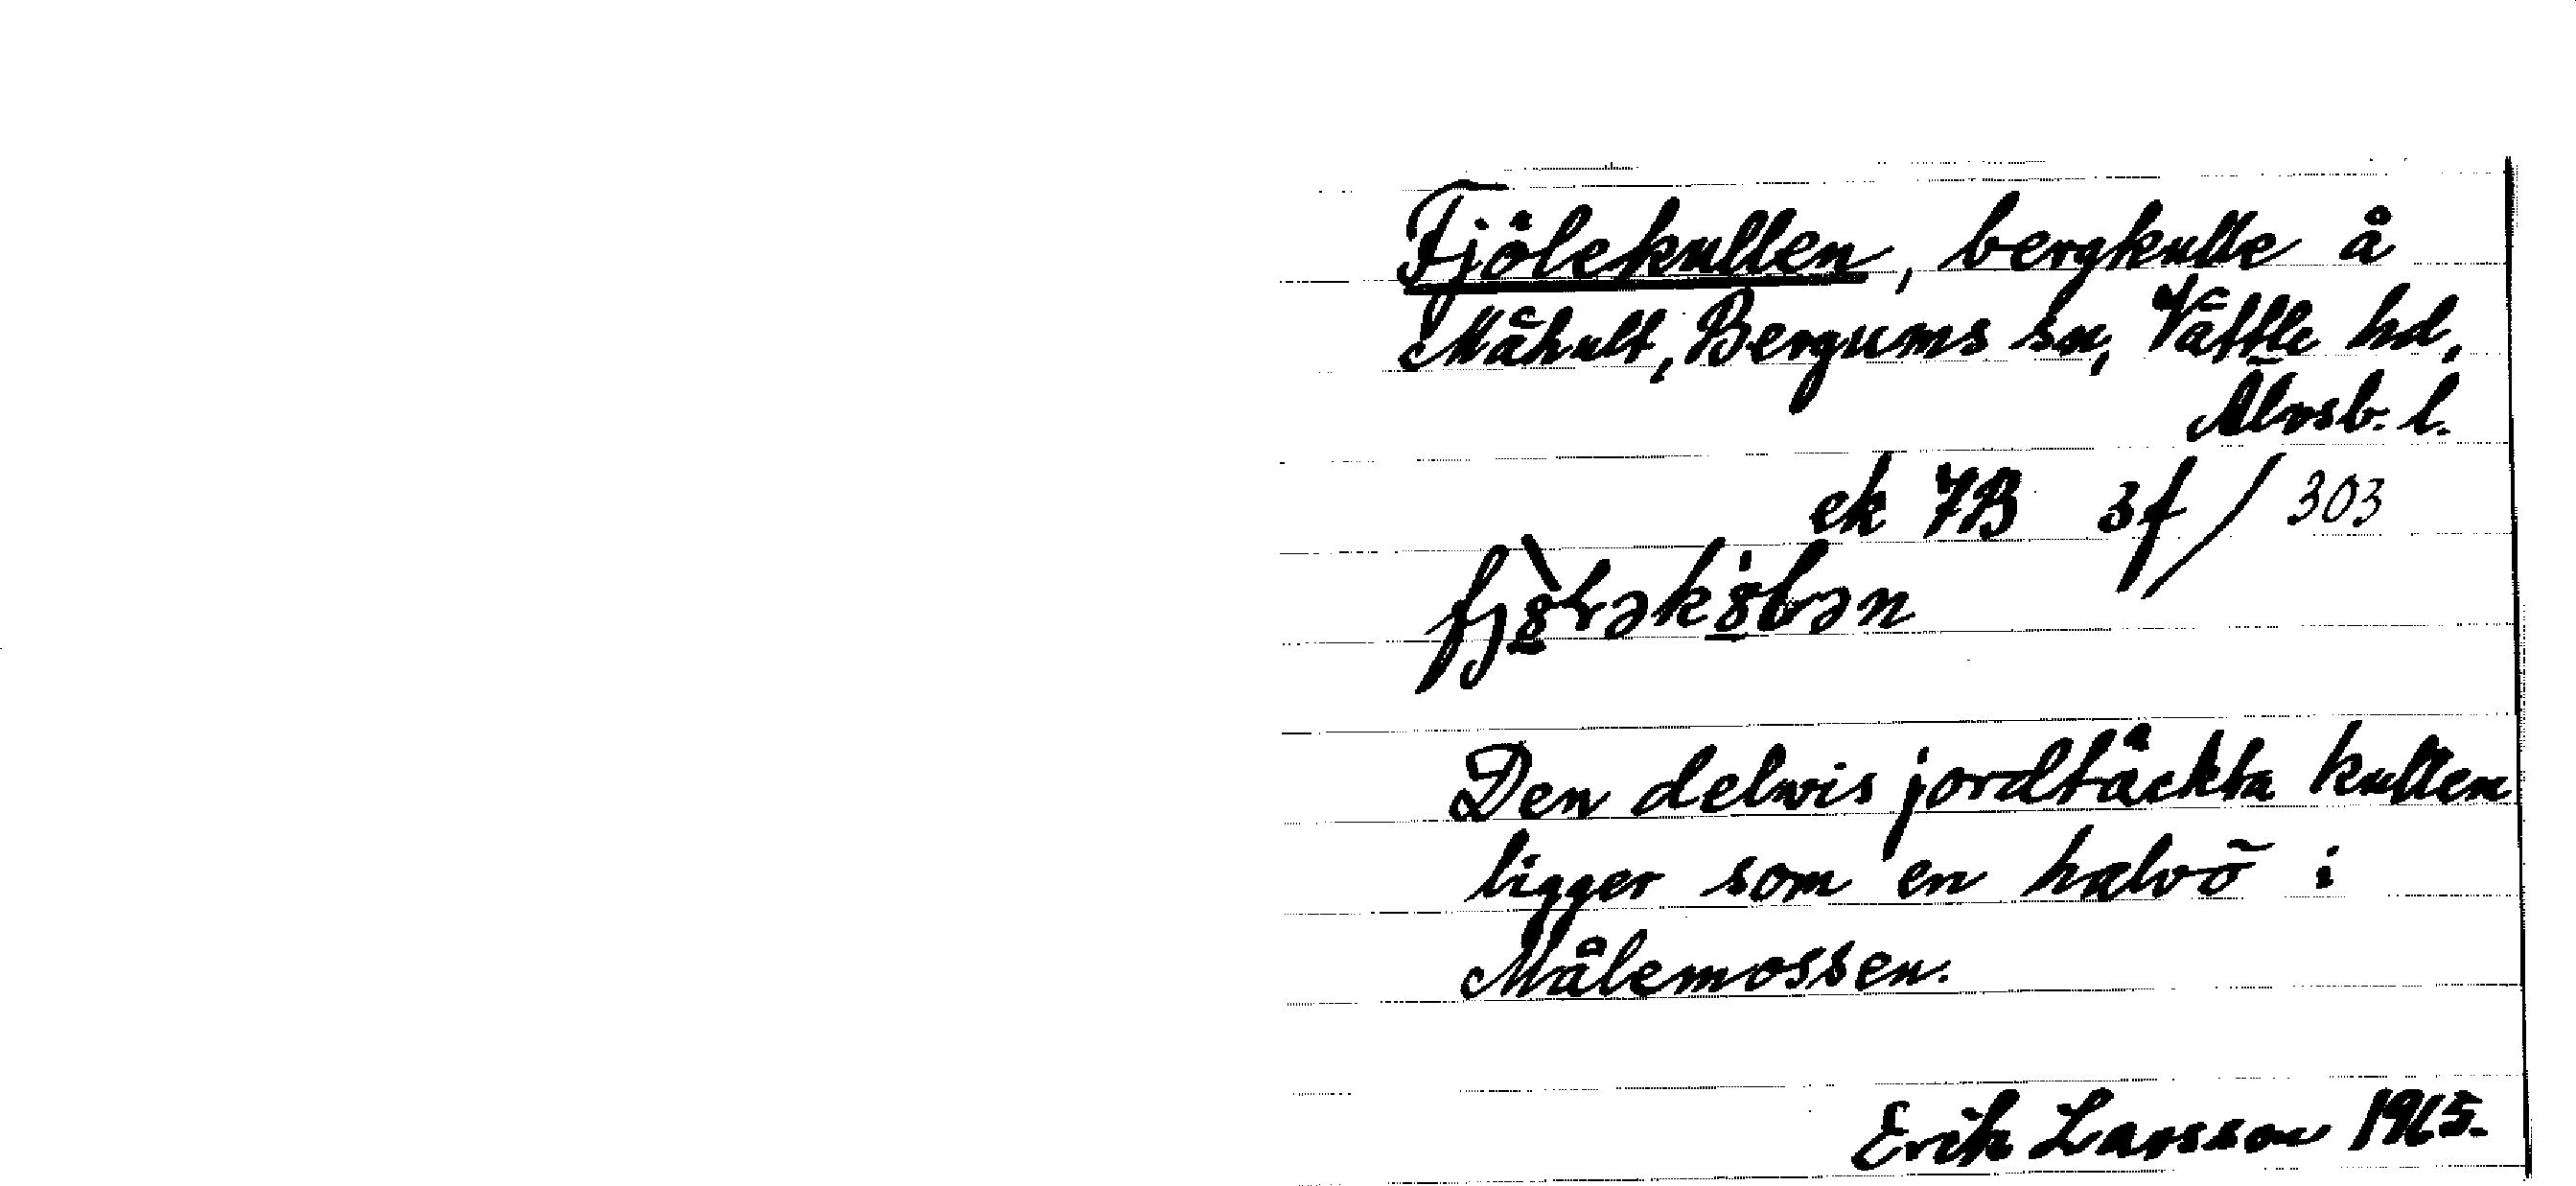 Fjölekullen, bergkulle å
Måhult, Bergums sn, Vättle hd,
Älvsb. l.
ek 7B 3f / 303
Den delvis jordtäckta kullen
ligger som en halvö i
Målemossen.
Erik Larsson 1965.